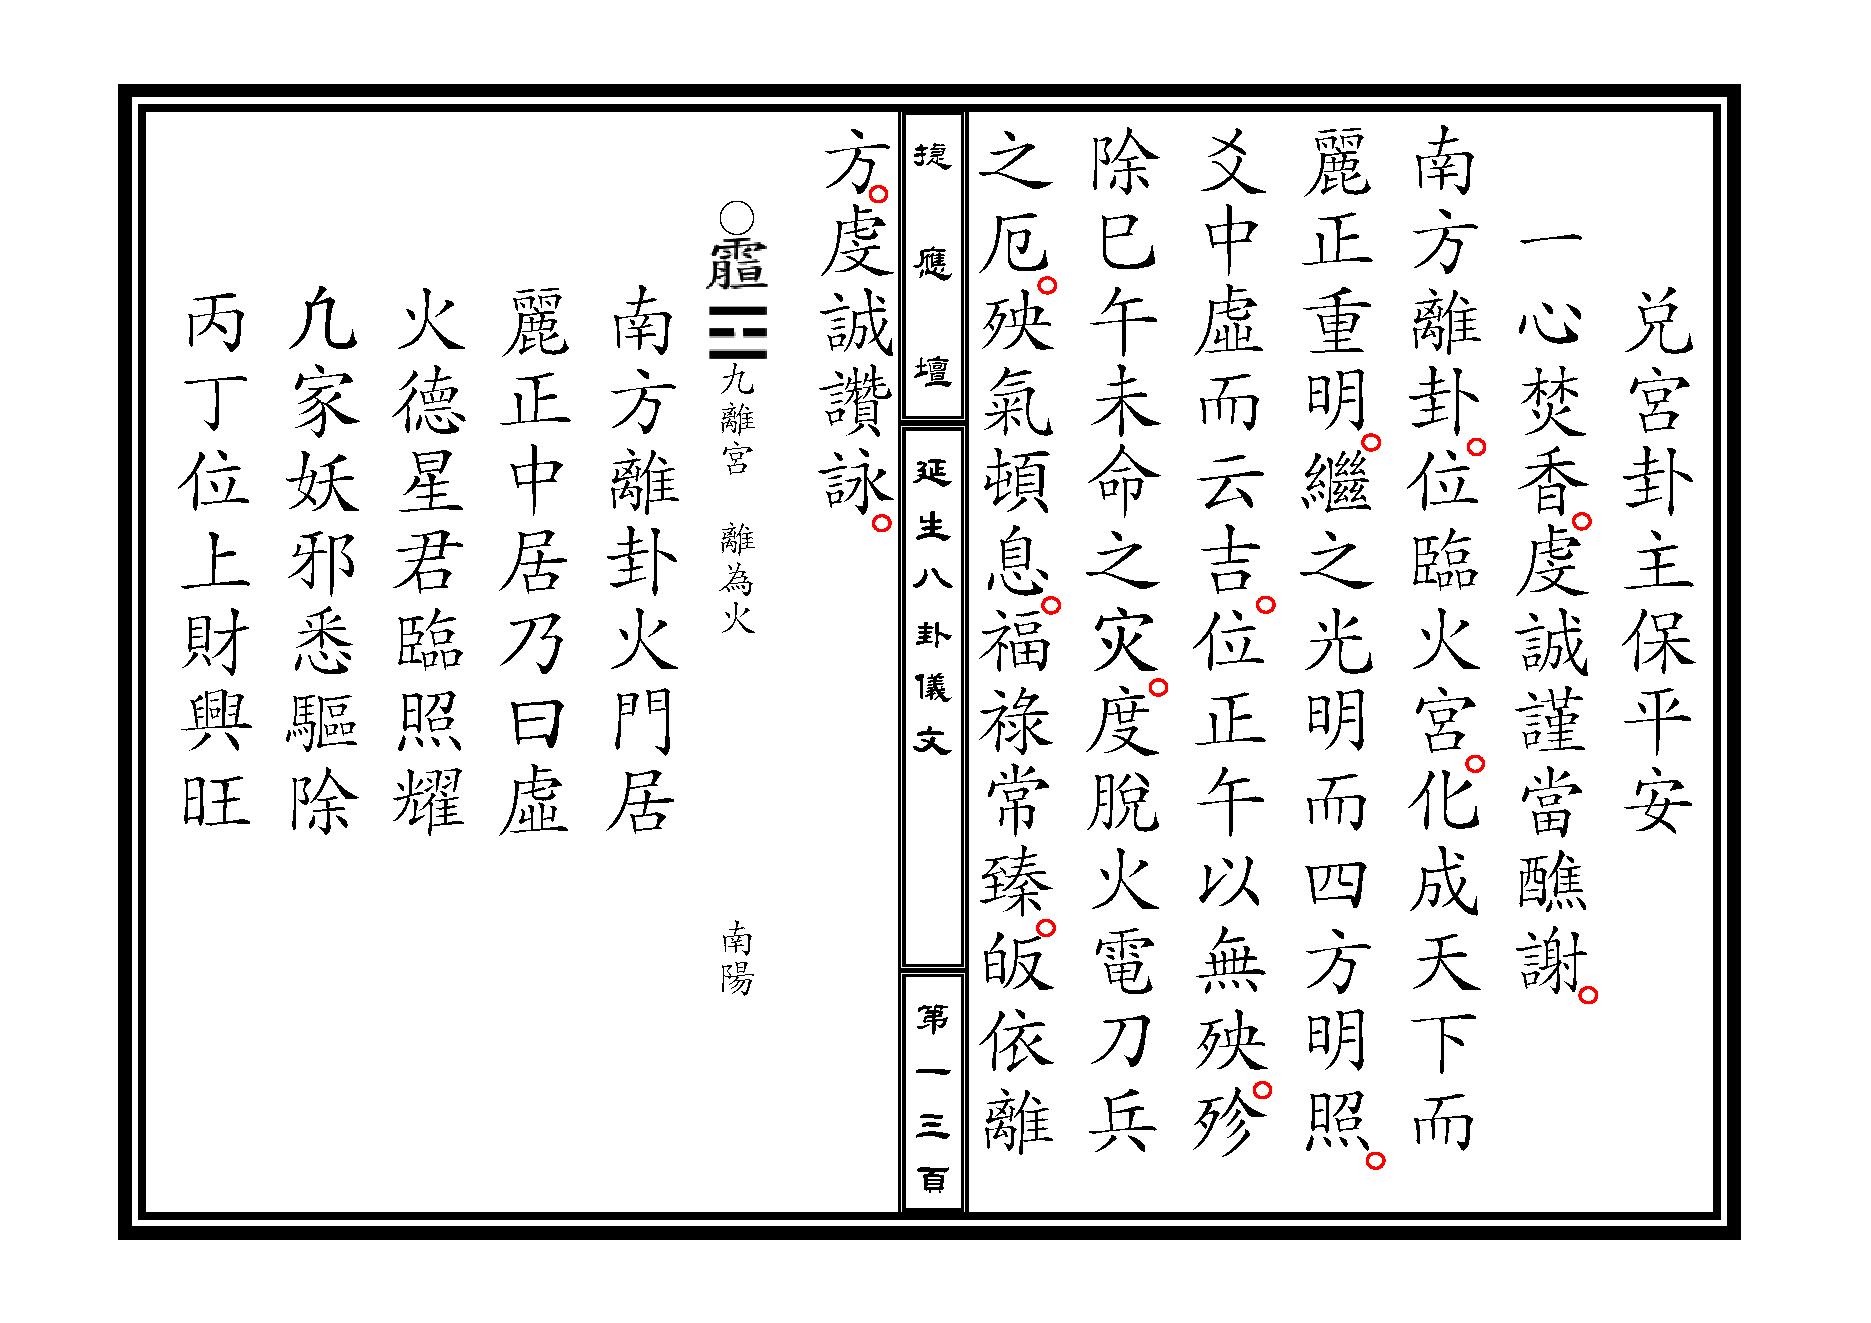 兌宮卦主保平安
一心焚香。虔誠謹當醮謝。
南方離卦。位臨火宮。化成天下而
麗正重明。繼之光明而四方明照。
爻中虛而云吉。位正午以無殃。殄
除巳午未命之灾。度脫火電刀兵
之厄。殃氣頓息。福祿常臻。皈依離
捷應壇
延生八卦儀文
第一三頁
方。虔誠讚詠。
○☲九離宮 離為火 南陽
南方離卦火門居
麗正中居乃曰虛
火德星君臨照耀
凢家妖邪悉驅除
丙丁位上財興旺